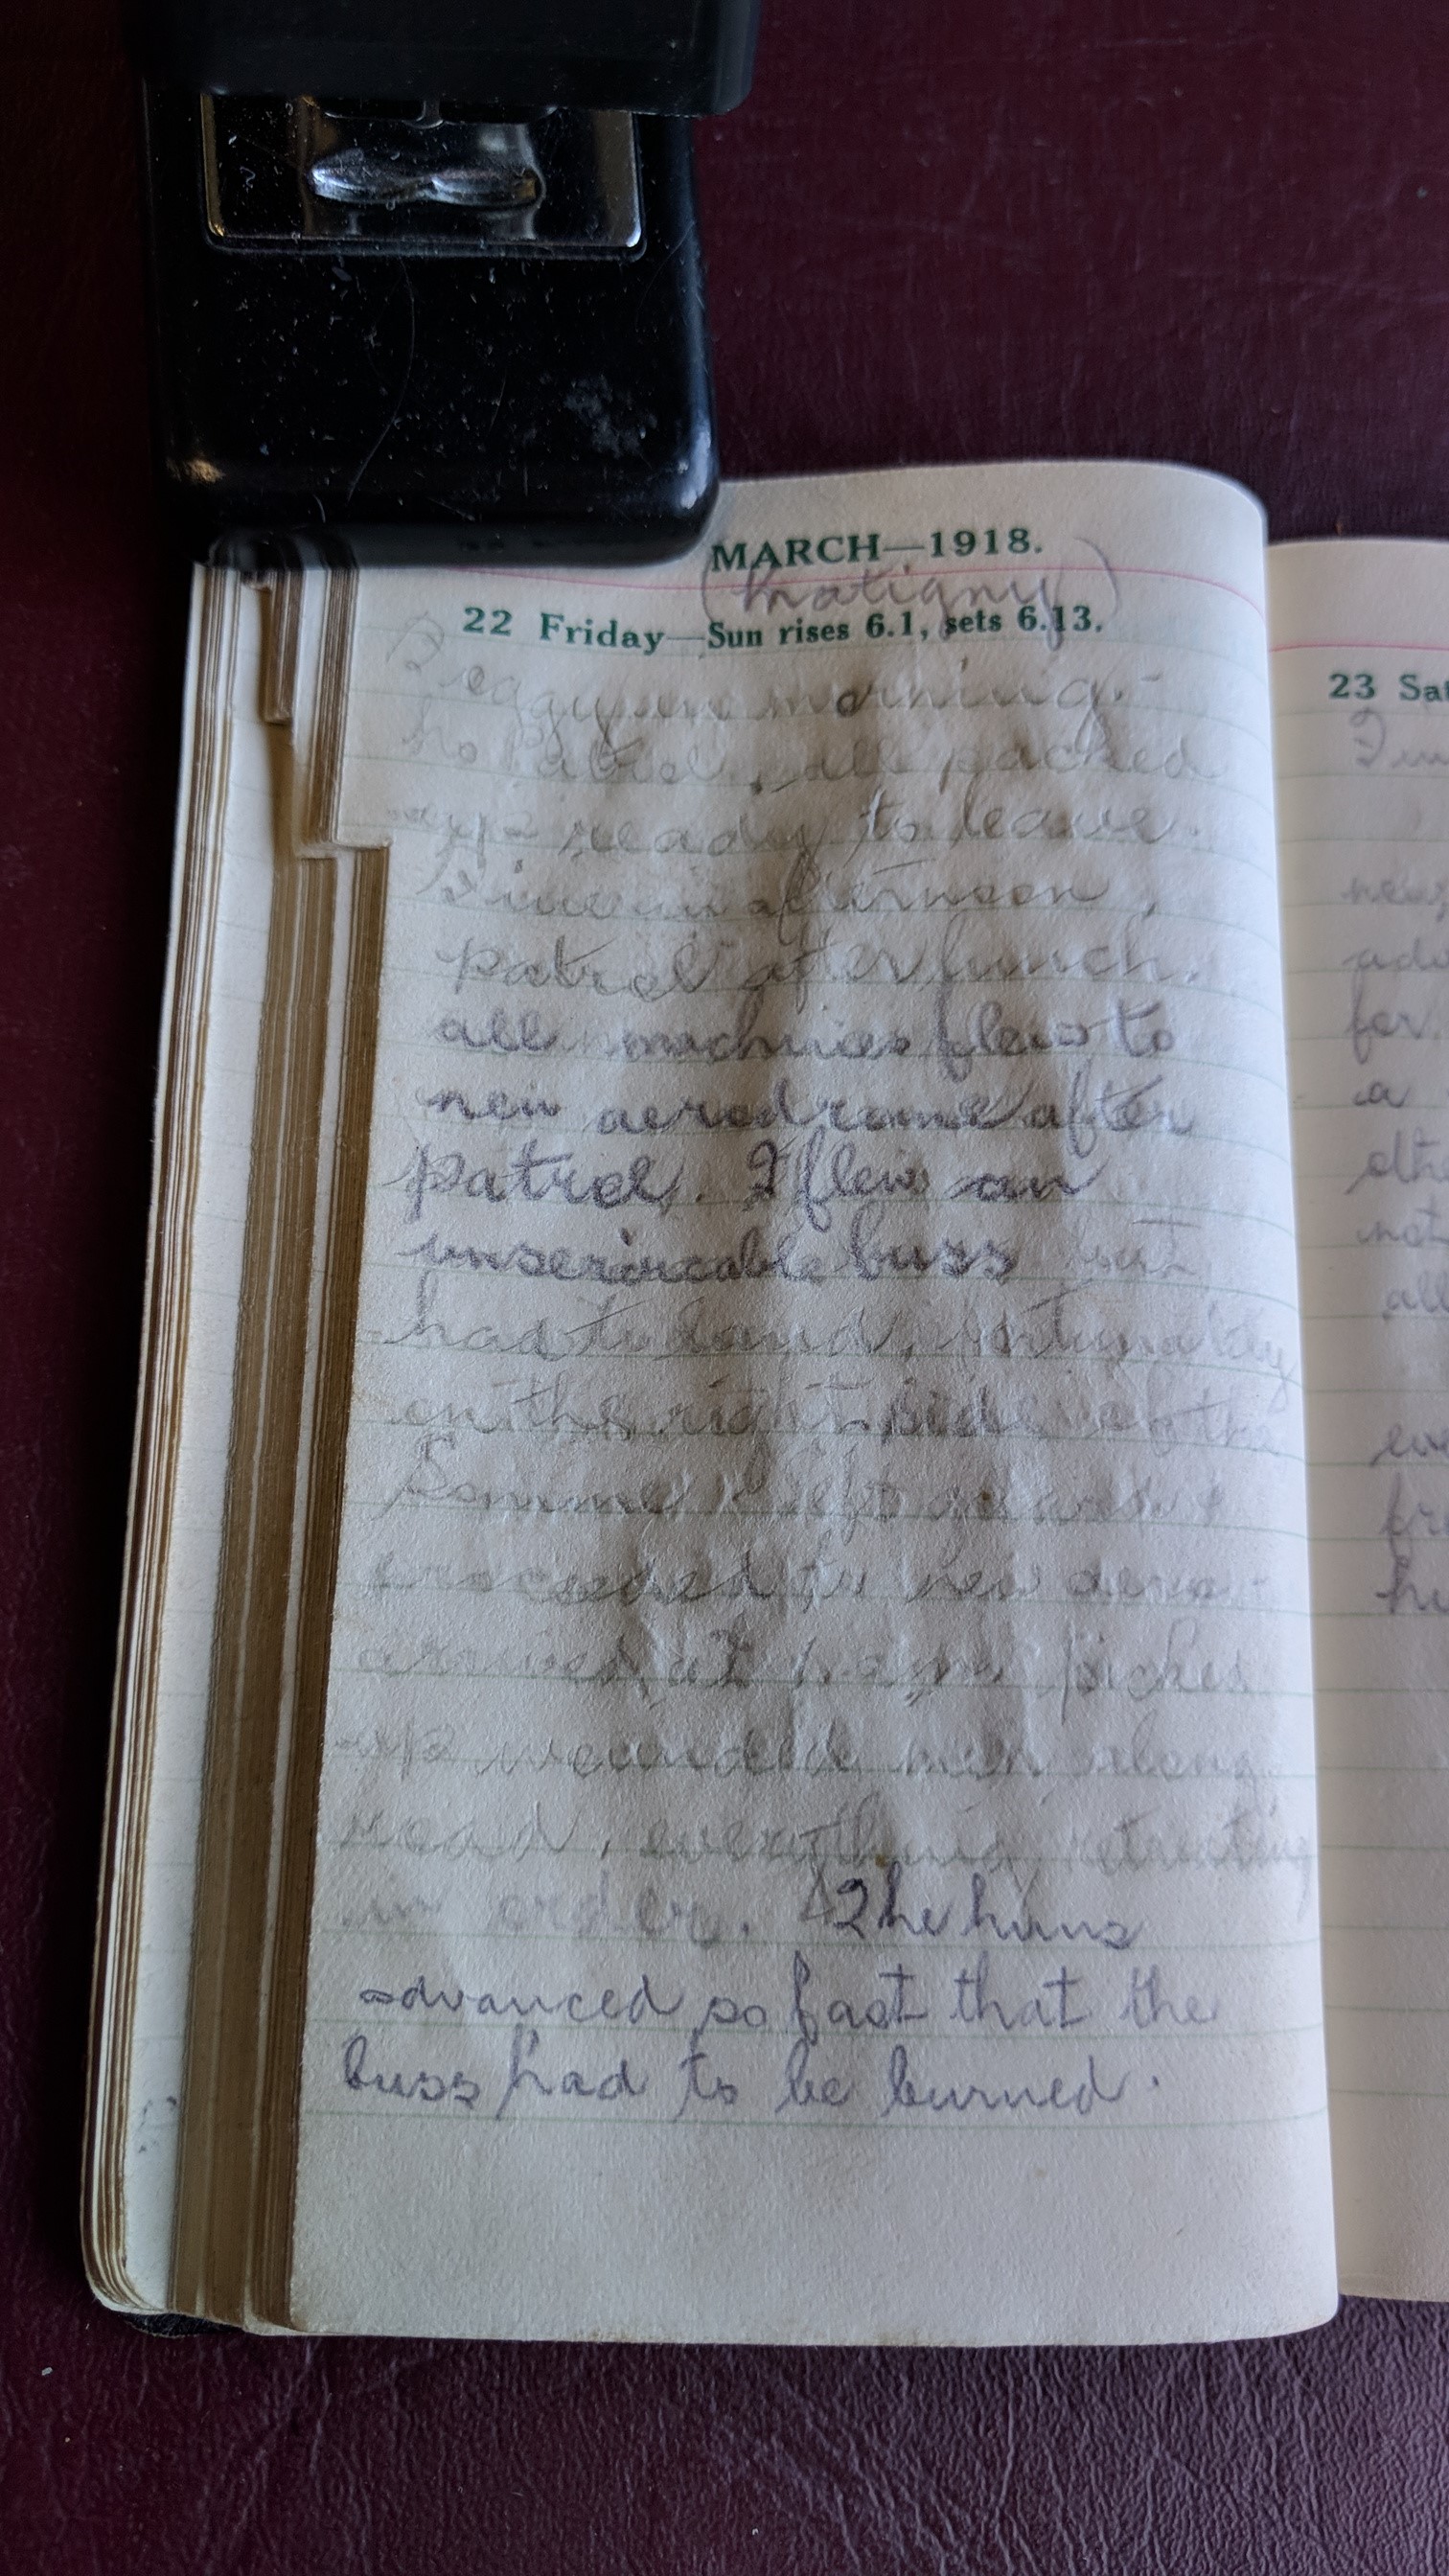 MARCH—1918.
(Matigny)
22 Friday—Sun rises 6.1, sets 6.13.
Foggy in morning.
no patrol, all packed
up ready to leave.
Fine in afternoon,
patrol after lunch.
all machines flew to
new aerodrome after
patrol. I flew an
unserviceable buss but
had to land, fortunately
on the right side of the
Somme
proceeded to new aero-
arrived at 1. a.m. picked
up wounded men along
road, everything retreating
in order. The huns
advanced so fast that the
buss had to be burned.
23 Sat